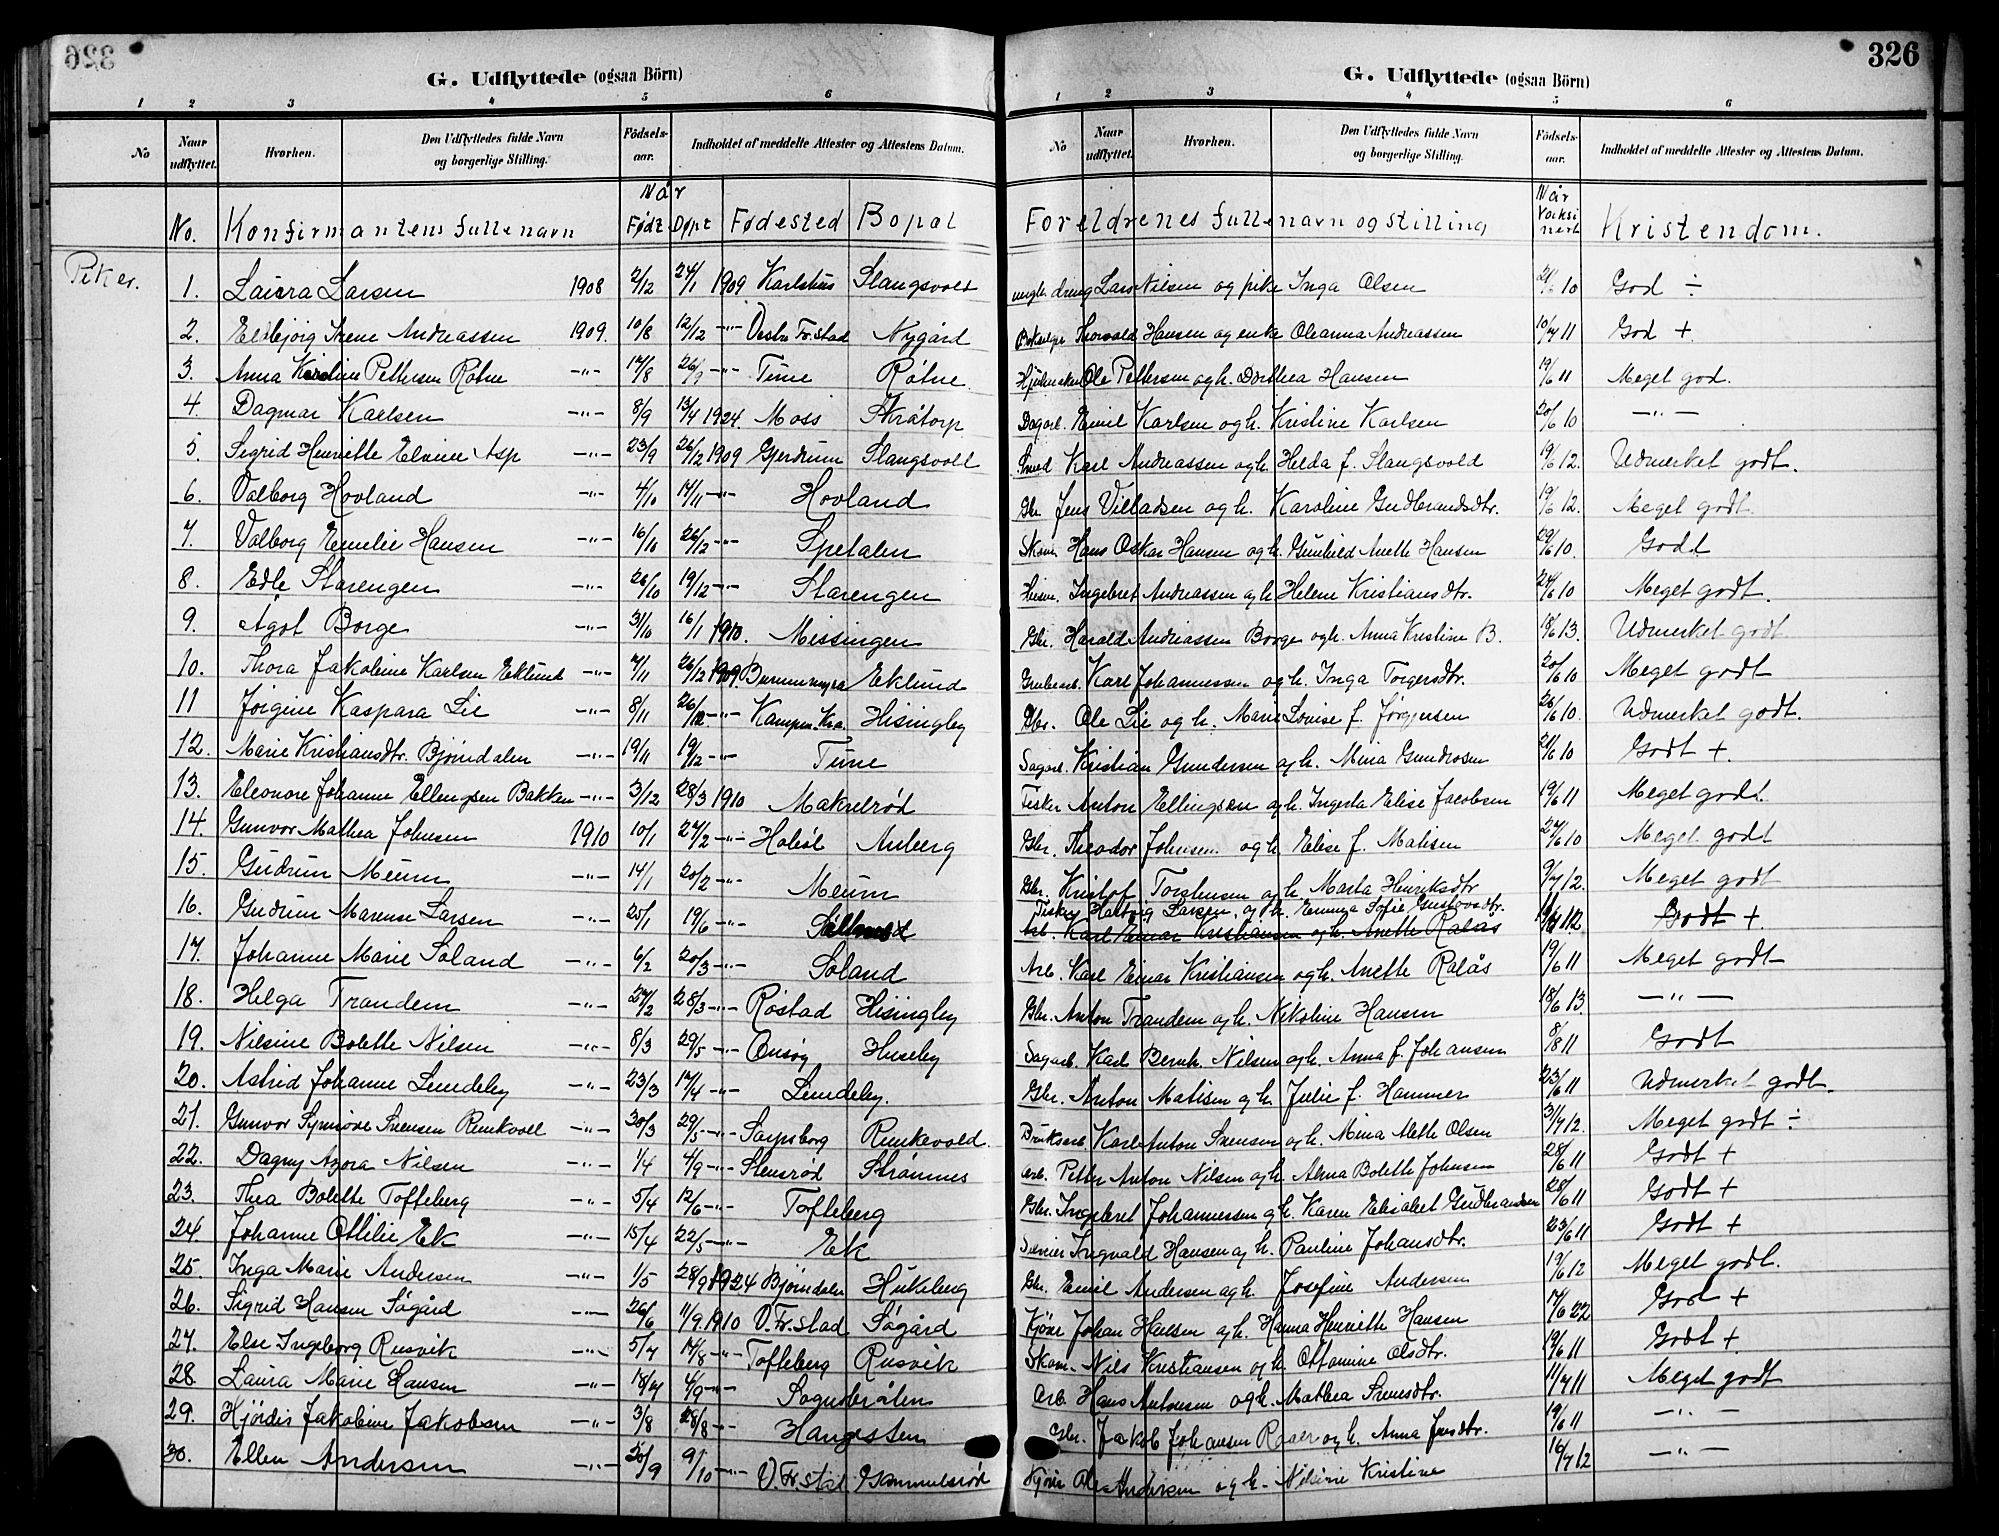 326
G. Udflyttede (ogsaa Börn)
1 2 3 4 5 6
No Naar udflyttet. Hvorhen. Den Udflyttedes fulde Navn og borgerlige Stilling. Födsels-aar. Indholdet af meddelte Attester og Attestens Datum.
Når
No. Konfirmantens fulle navn Født Døpt Fødested Bopæl
Piker.
1. Laura Larsen 1908 2/12 24/1 1909 Karlshus Slangsvold
2. Eldbjørg Irene Andreassen 1909. 10/8 12/12 -"- Vestre Fr.stad Nygård
3. Anna Karoline Pettersen Røtne -"- 17/8 26/9 -"- Tune Røtne
4. Dagmar Karlsen -"- 8/9 13/4 1924. Moss Skråtorp
5. Sigrid Henriette Elvine Asp -"- 23/9 26/12 1909 Gjerdrum Slangsvold
6. Valborg Hovland -"- 4/10 14/11 -"- Hovland
7. Valborg Emelie Hansen -"- 16/10 26/12 -"- Spetalen
8. Edle Starengen -"- 26/10 19/12 -"- Starengen
9. Ågot Borge -"- 31/10 16/1 1910. Missingen
10. Thora Jakobine Karlsen Eklund -"- 7/11 26/12 1909. Eklund
11 Jørgine Kaspara Lie -"- 8/11 26/12 -"- Kampen Kra. Hisingby
12. Marie Kristiansdtr. Bjørndalen -"- 19/11 19/12 -"- Tune
13. Eleonore Johanne Ellingsen Bakken -"- 3/12 28/3 1910 Makrelrød
14. Gunvor Mathea Johnsen 1910 10/1 27/2 -"- Hobøl Anberg
15. Gudrun Meum -"- 14/1 20/2 -"- Meum
16. Gudrun Marense Larsen -"- 25/1 19/6 -"-
17. Johanne Marie Søland -"- 6/2 20/3 -"- Søland
18. Helga Trandem -"- 27/2 28/3 -"- Røstad Hisingby
19. Nilsine Bolette Nilsen -"- 8/3 29/5 -"- Onsøy Huseby
20. Astrid Johanne Lundeby -"- 23/3 17/4 -"- Lundeby.
21. Gunvor Synnøve Svensen Runkvoll -"- 30/3 29/5 -"- Sarpsborg Runkevold
22. Dagny Azora Nilsen -"- 1/4 4/9 -"- Stensrød Strømnes
23. Thea Bolette Tofteberg -"- 5/4 12/6 -"- Tofteberg
24. Johanne Ottilie Ek -"- 15/4 22/5 -"- Ek
25. Inga Marie Andersen -"- 1/5 28/9 1924 Bjørndalen Hukeberg
26. Sigrid Hansen Søgård -"- 26/6 11/9 1910 V. Fr.stad Søgård
27. Else Ingeborg Rusvik -"- 5/7 14/8 -"- Tofteberg Rusvik
28. Laura Marie Hansen -"- 18/7 4/9 -"- Sognebråten
29. Hjørdis Jakobine Jakobsen -"- 3/8 28/8 -"- Haugesten
30. Ellen Andersen -"- 20/9 9/10 -"- V. Fr.stad Gammelsrød
326
G. Udflyttede (ogsaa Börn)
1 2 3 4 5 6
No Naar udflyttet. Hvorhen. Den Udflyttedes fulde Navn og borgerlige Stilling. Födsels-aar. Indholdet af meddelte Attester og Attestens Datum.
Foreldrenes fulle navn og stilling Når Vaksinert Kristendom.
ungk. dreng Lars Nilsen og pike Inga Olsen 21/6 10 God ÷
Thorvald Hansen og enke Oleanna Andreassen 10/7 11 God +
Ole Pettersen og h. Dorthea Hansen 19/6 11 Meget god.
Dagarb. Emil Karlsen og h. Kristine Karlsen 20/6 10 -"-
Smed Karl Andreassen og h. Helda f. Slangsvold 19/6 12. Udmerket godt.
Gbr. Jens Villadsen og h. Karoline Gudbrandsdtr. 19/6 12. Meget godt.
Skom. Hans Oskar Hansen og h. Gunhild Anette Hansen 29/6 10. Godt
Husm. Ingebret Andreassen og h. Helene Kristiansdtr. 24/6 10 Meget godt.
Gbr. Harald Andreassen Borge og h. Anna Kristine B. 18/6 13. Udmerket godt
Grubearb. Karl Johannessen og h. Inga Torgersdtr. 20/6 10 Meget godt
Gbr. Ole Lie og h. Marie Lovise f. Jørgensen 26/6 10. Udmerket godt.
Sagarb. Kristian Gundersen og h. Mina Gundrosen 21/6 10 Godt +
Fisker Anton Ellingsen og h. Ingerta Elise Jacobsen 19/6 11 Meget godt.
Gbr. Theodor Johnsen og h. Elise f. Matisen 27/6 10 Meget godt
Gbr. Kristof Torstensen og h. Marta Henriksdtr 9/7 12. Meget godt
Fisker Halvdrig Larsen, og h. Emma Sofie Gustavsdtr.
Arb. Karl Einar Kristiansen og h. Anette Ralås Godt +
Arb. Karl Einar Kristiansen og h. Anette Ralås 19/6 11 Meget godt
Gbr. Anton Trandem og h. Nikoline Hansen 18/6 13. -"-
Sagarb. Karl Bernh. Nilsen og h. Anna f. Johansen 8/8 11 Godt
Gbr. Anton Matisen og h. Julie f. Hammer 23/6 11 Udmerket godt.
Bruksarb. Karl Anton Svensen og h. Mina Alette Olsen 31/7 12. Meget godt ÷
Arb. Petter Anton Nilsen og h. Alma Bolette Johnsen 28/6 11 Godt +
Gbr. Ingebret Johannessen og h. Karen Elisabet Gudbrandsen 28/6 11 Godt +
Ingvald Hansen og h. Pauline Johansdtr. 23/6 11 Godt +
Gbr. Emil Andersen og h. Josefine Andersen 19/6 12 Meget godt.
Kjøm Johan Hansen og h. Hanna Henriette Hansen 17/6 22 God +
Skom. Nils Kristiansen og h. Ottomine Olsdtr. 19/6 11 Godt +
Arb. Hans Antonsen og h. Mathea Svensdtr. 11/7 11 Meget godt
Gbr. Jakob Johansen Raaer og h. Anna Jensdtr. 19/6 11 -"-
Ole Andersen og h. Nilsine Kristine 16/7 12 -"-